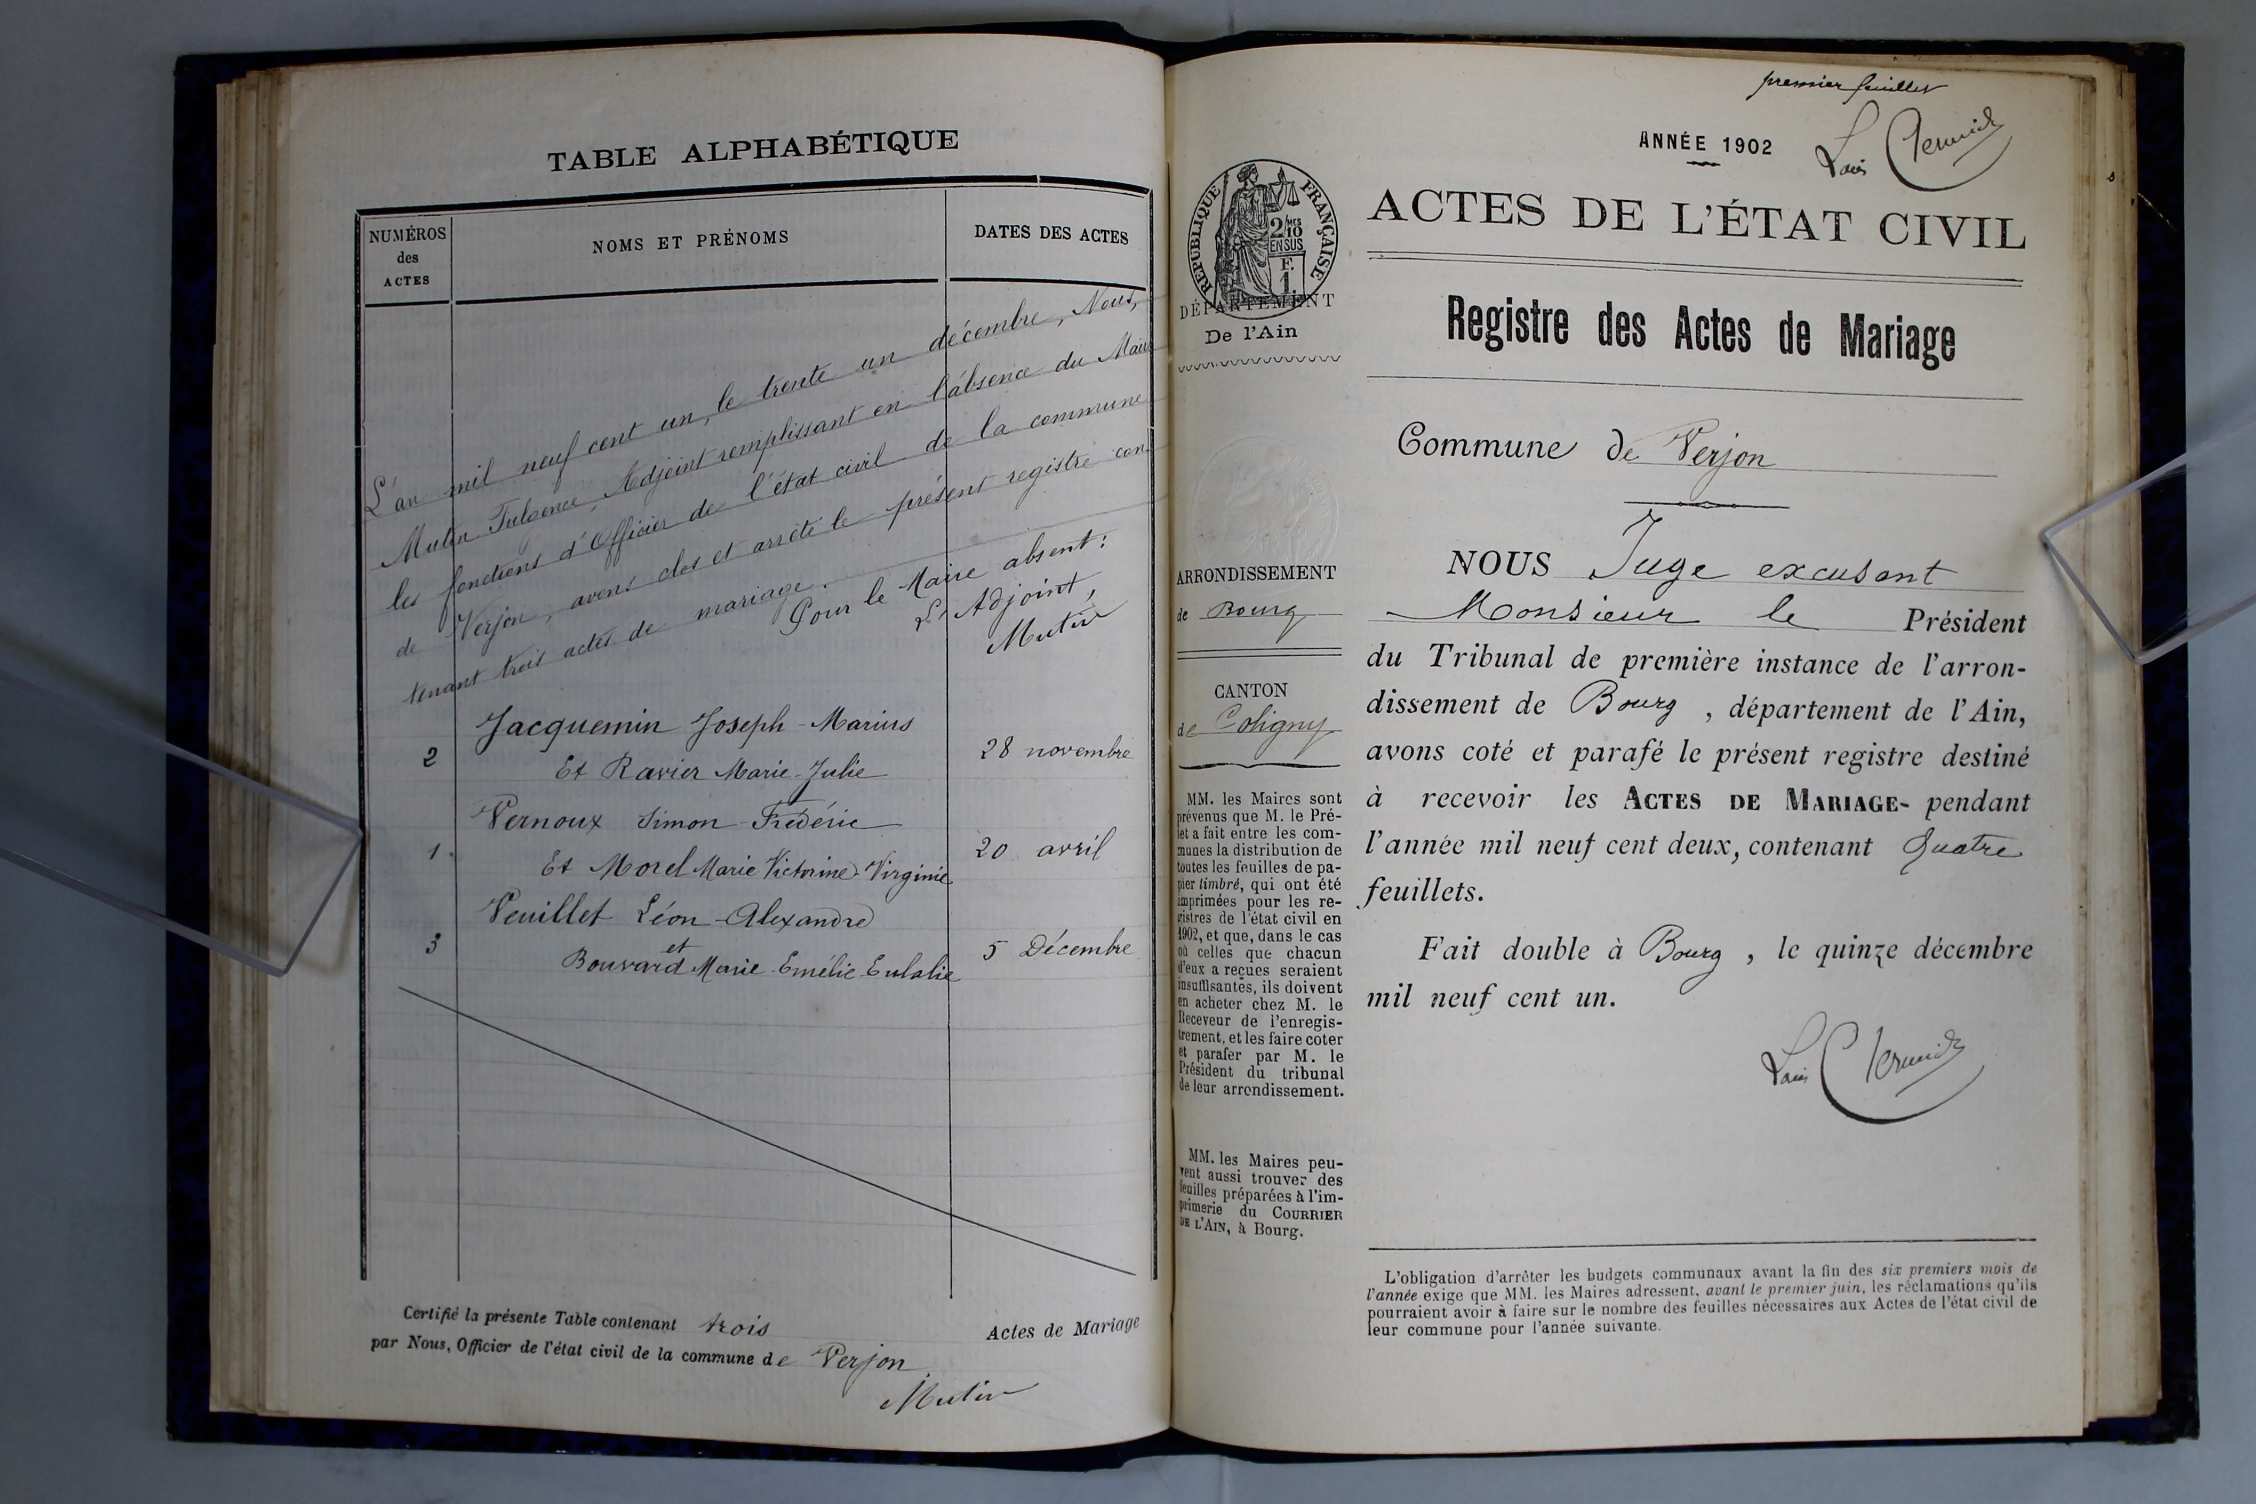 TABLE ALPHABÉTIQUE
NUMÉROS
des
ACTES
NOMS ET PRÉNOMS
DATES DES ACTES
L'an mil neuf cent un, le trente un décembre, Nous,
Mutin Fulgence, Adjoint remplissant en l'absence du Maire
les fonctions d'Officier de l'état civil de la commune
de Verjon, avons clos et arrêté le présent registre con
tenant trois actes de mariage.
Pour le Maire absent:
L'Adjoint,
Mutin
Jacquemin Joseph-Marius
2 28 novembre
Et Ravier Marie-Julie
Vernoux Simon-Frédéric
1 20 avril
Et Morel Marie Victorine Virginie
Veuillet Léon-Alexandre
3 et 5 Décembre
Bouvard Marie-Emélie-Eulalie
Certifié la présente Table contenant trois Actes de Mariage
par Nous, Officier de l'état civil de la commune de Verjon
Mutin
premier feuillet
ANNÉE 1902
Louis
RÉPUBLIQUE FRANÇAISE
2/10
EN SUS
F.
1.
DÉPARTEMENT
De l'Ain
ARRONDISSEMENT
de Bourg
CANTON
de Coligny
MM. les Maires sont
prévenus que M. le Pré-
fet a fait entre les com-
munes la distribution de
toutes les feuilles de pa-
pier timbré, qui ont été
imprimées pour les re-
gistres de l'état civil en
1902, et que, dans le cas
où celles que chacun
d'eux a reçues seraient
insuffisantes, ils doivent
en acheter chez M. le
Receveur de l'enregis-
trement, et les faire coter
et parafer par M. le
Président du tribunal
de leur arrondissement.
MM. les Maires peu-
vent aussi trouver des
feuilles préparées à l'im-
primerie du COURRIER
DE L'AIN, à Bourg.
ACTES DE L'ÉTAT CIVIL
Registre des Actes de Mariage
Commune de Verjon
NOUS Juge excusant
Monsieur le Président
du Tribunal de première instance de l'arron-
dissement de Bourg, département de l'Ain,
avons coté et parafé le présent registre destiné
à recevoir les ACTES DE MARIAGE- pendant
l'année mil neuf cent deux, contenant Quatre
feuillets.
Fait double à Bourg, le quinze décembre
mil neuf cent un.
Louis
L'obligation d'arrêter les budgets communaux avant la fin des six premiers mois de
l'année exige que MM. les Maires adressent, avant le premier juin, les réclamations qu'ils
pourraient avoir à faire sur le nombre des feuilles nécessaires aux Actes de l'état civil de
leur commune pour l'année suivante.